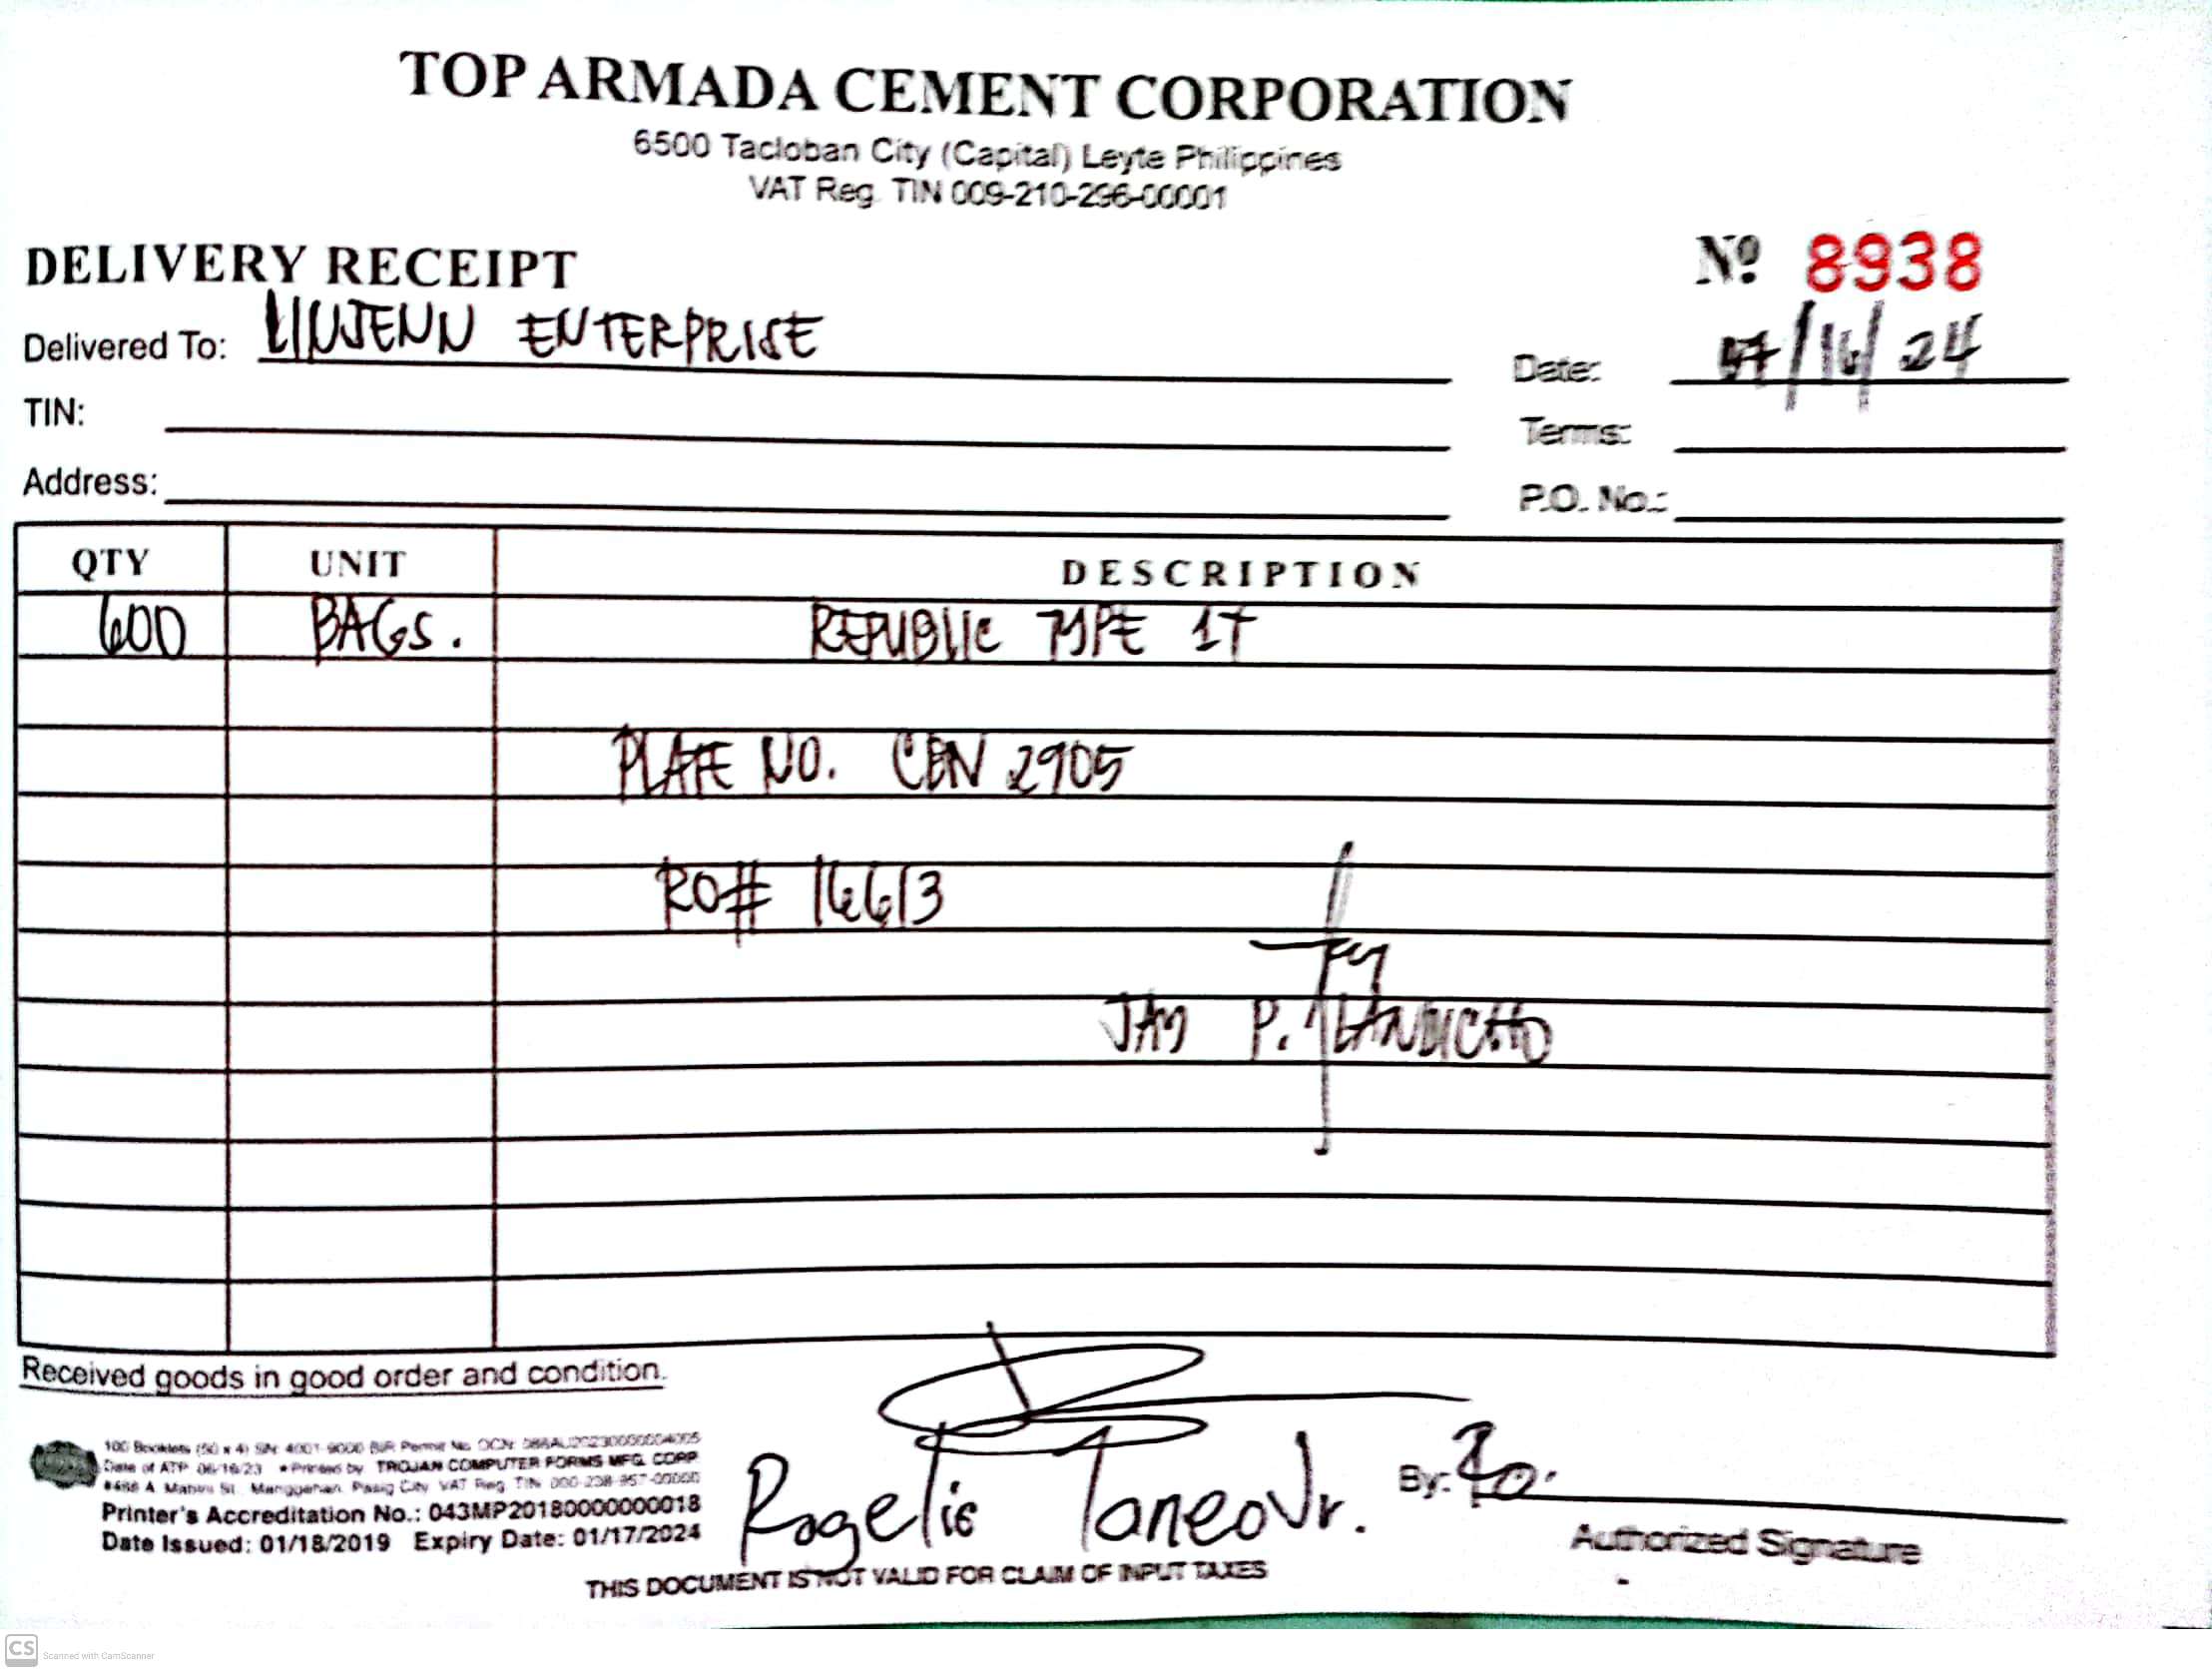 TOP ARMADA CEMENT CORPORATION
6500 Tacloban City (Capital) Leyte Philippines
VAT Reg. TIN 009-210-296-00001
DELIVERY RECEIPT
Nº 8938
Delivered To: LINJENN ENTERPRISE
Date: 07/16/24
TIN:
Terms:
Address:
P.O. No.:
QTY UNIT DESCRIPTION
600 BAGS. REPUBLIC TYPE 1T
PLATE NO. CBN 2905
RO# 16613
JAY P. LANDICHO
Received goods in good order and condition.
100 Booklets (50 x 4) SN: 4001-9000 BIR Permit No. OCN:
Date of ATP: 06/16/23 • Printed by: TROJAN COMPUTER FORMS MFG. CORP
St. Manggahan, Pasig City VAT Reg. TIN: 000-238-957-00000
Printer's Accreditation No.: 043MP20180000000018
Date Issued: 01/18/2019 Expiry Date: 01/17/2024
Rogelio Taneo Jr.
By:
Authorized Signature
THIS DOCUMENT IS NOT VALID FOR CLAIM OF INPUT TAXES
CS Scanned with CamScanner